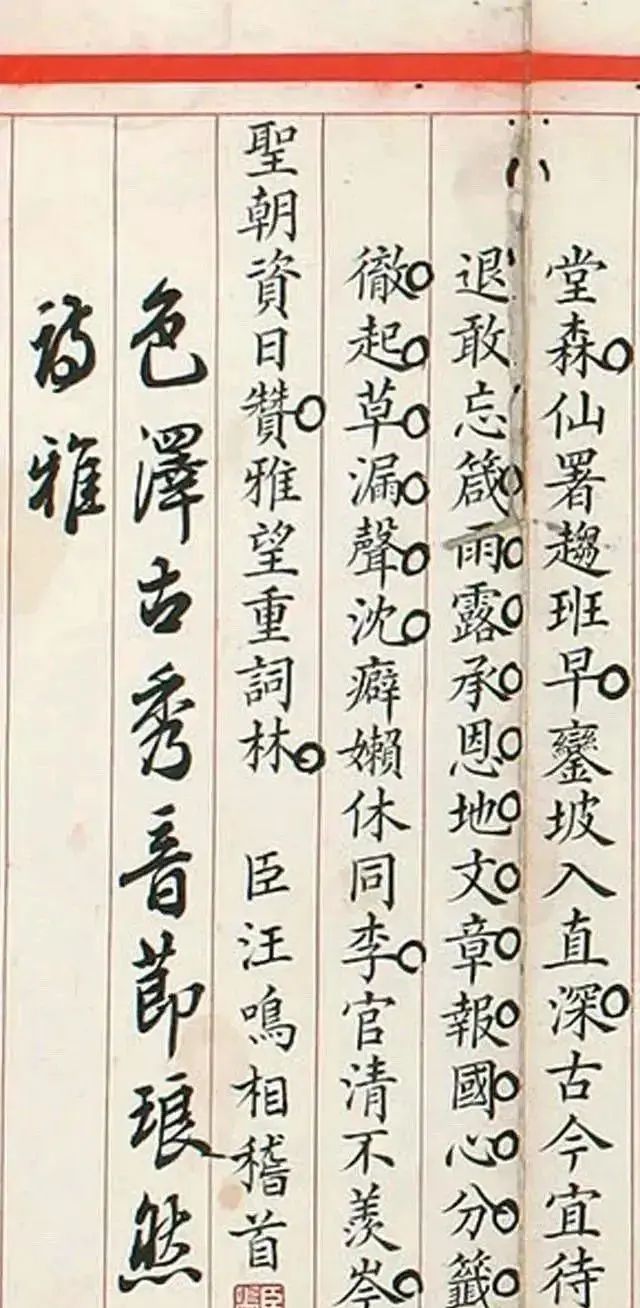 堂森仙署趨班早鑾坡入直深古今宜待
退敢忘箴雨露承恩地文章報國心分籤
徹起草漏聲沈癖嬾休同李官清不羨岑
聖朝資日贊雅望重詞林 臣汪鳴相稽首
色澤古秀音節琅然
詩雅